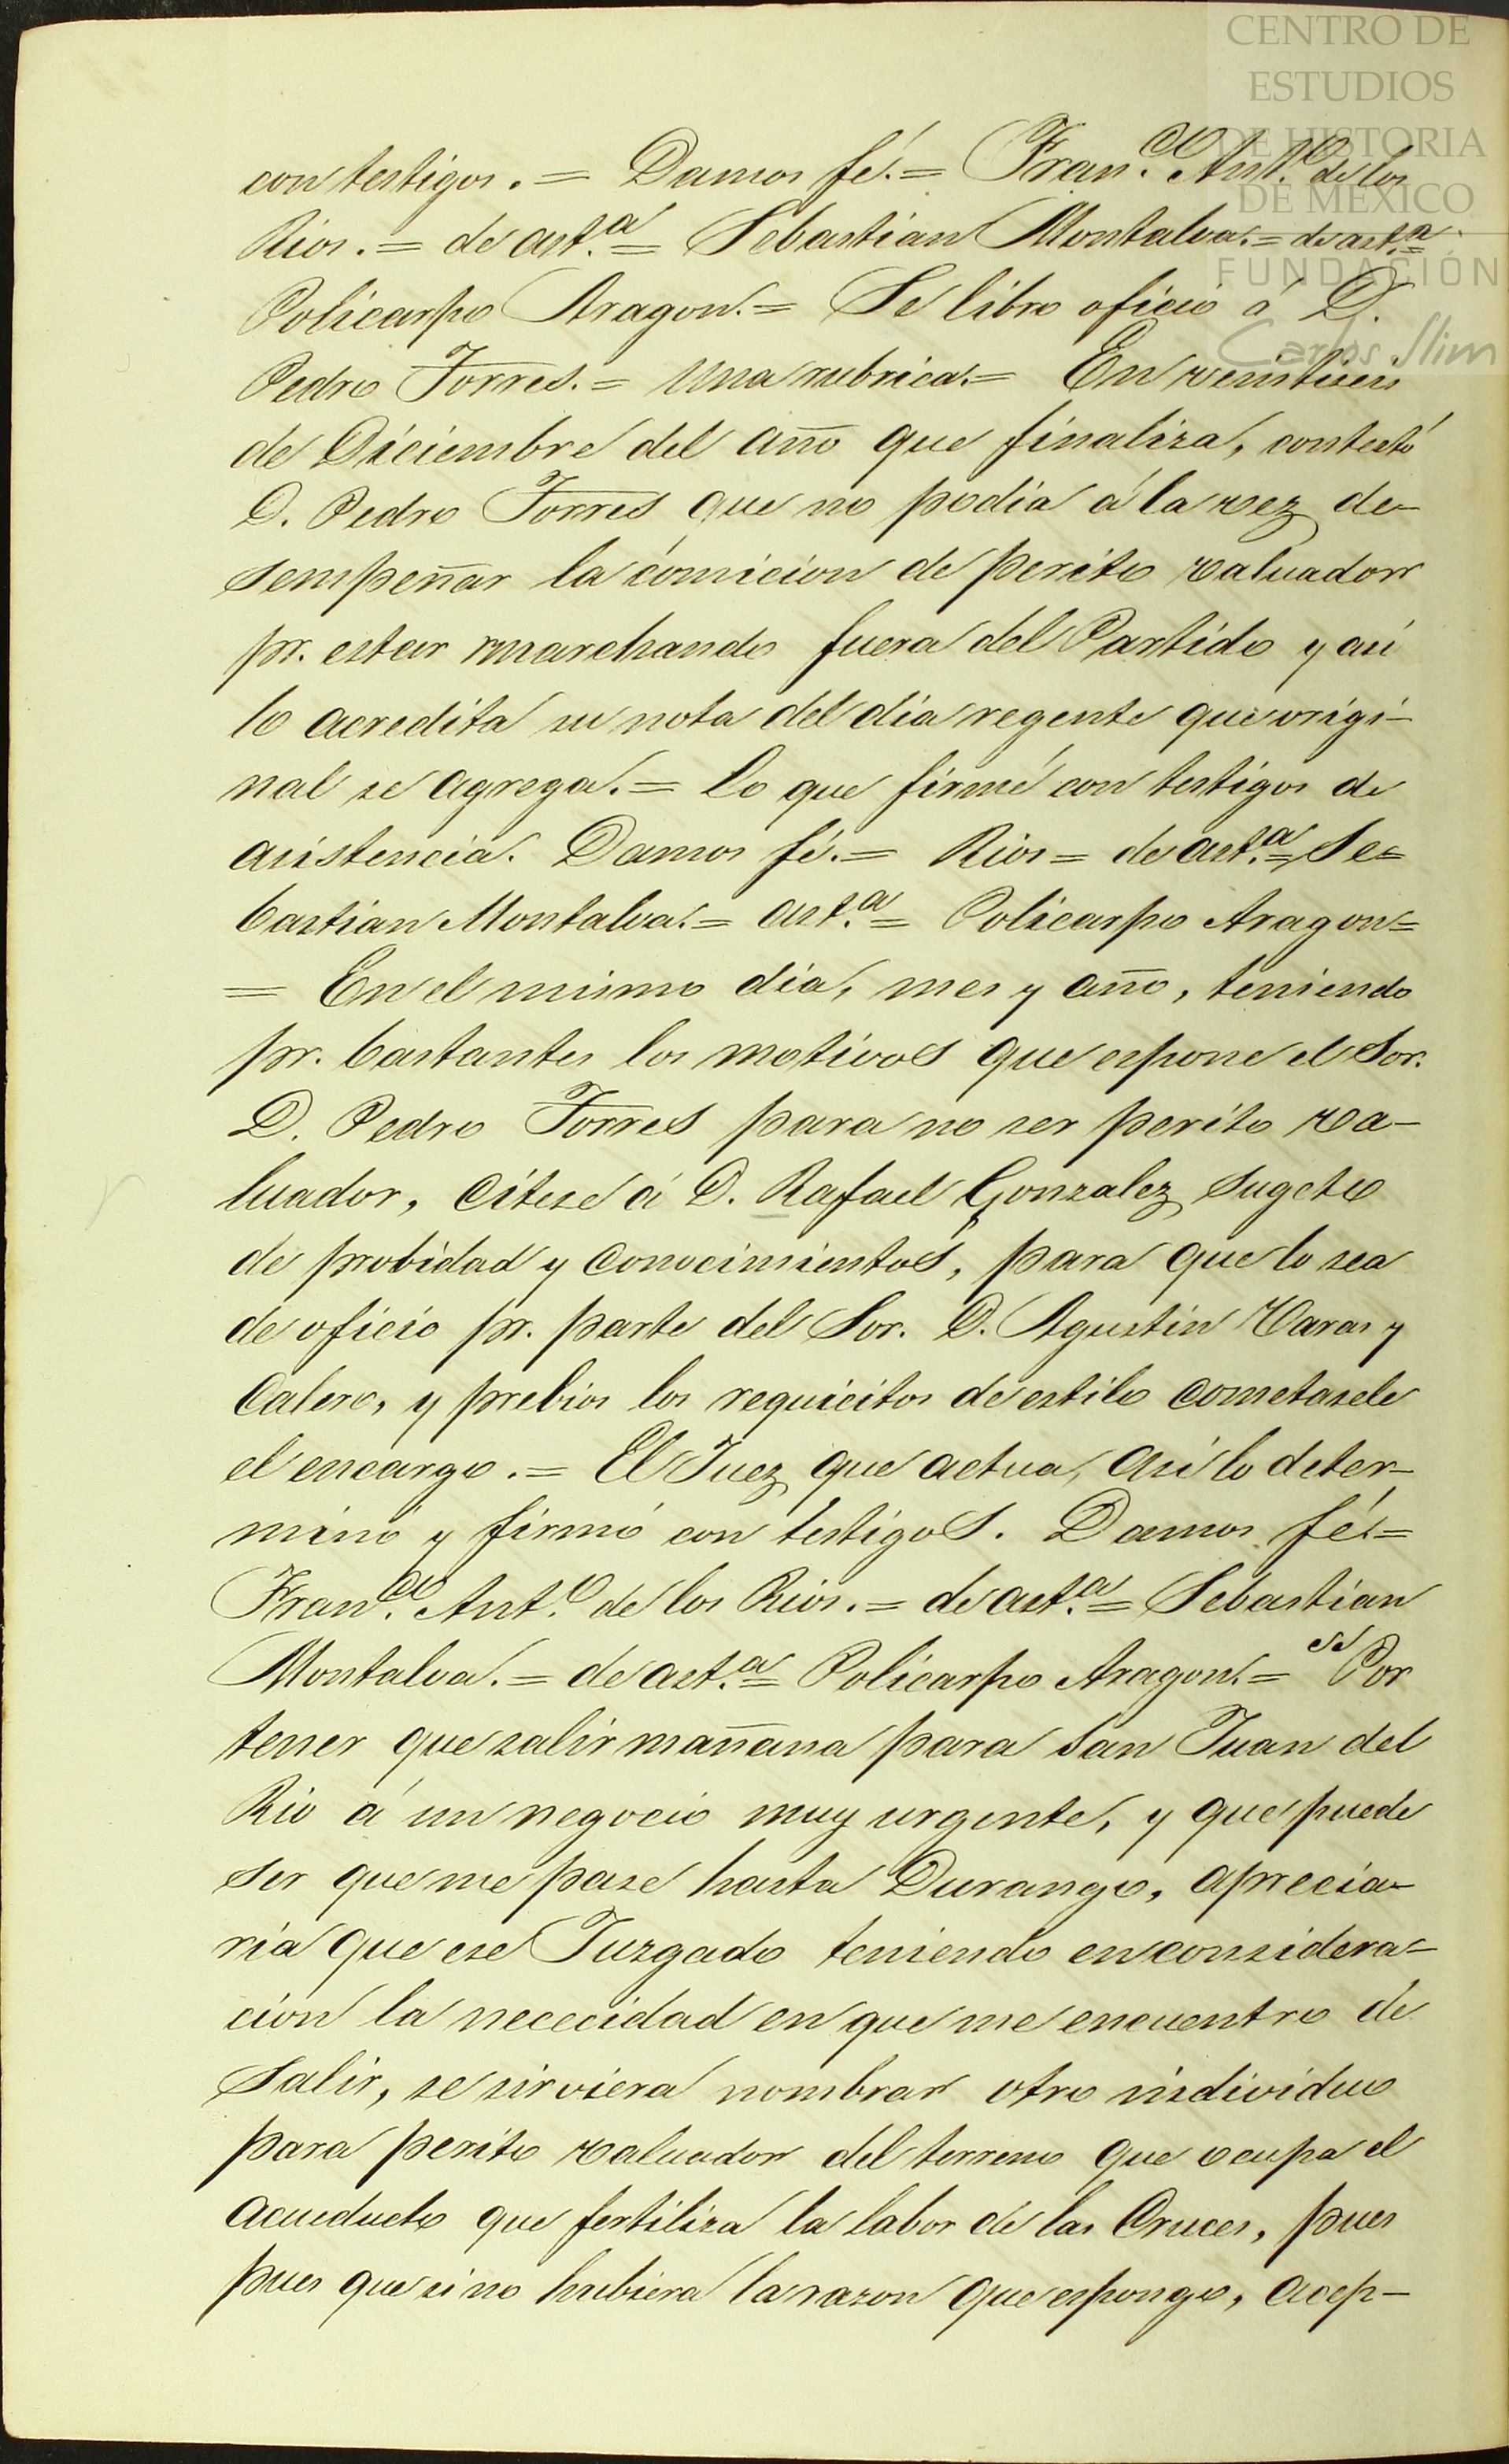 CENTRO DE
ESTUDIOS
DE HISTORIA
DE MÉXICO
FUNDACIÓN
Carlos Slim
con testigos. = Damos fé. = Fran.co Ant.o de los
Rios. = de ast.a = Sebastian Montalva. = de ast.a =
Policarpo Aragon. = Se libro oficio á D.
Pedro Torres. = Una rubrica. = En veintiseis
de Diciembre del año que finaliza, contestó
D. Pedro Torres que no podia á la vez de-
sempeñar la comicion de perito valuador
pr. estar marchando fuera del Partido y asi
lo acredita su nota del dia regente que origi-
nal se agrega. = Lo que firmé con testigos de
asistencia. Damos fé. = Rios = de ast.a = Se=
bastian Montalva. = ast.a = Policarpo Aragon =
= En el mismo dia, mes y año, teniendo
pr. bastantes los motivos que espone el Sor.
D. Pedro Torres para no ser perito va-
luador, Citese á D. Rafael Gonzalez sugeto
de probidad y conocimientos, para que lo sea
de oficio pr. parte del Sor. D. Agustin Varas y
Calero, y prebios los requicitos de estilo cometasele
el encargo. = El Juez que actua, asi lo deter-
minó y firmó con testigos. Damos fé. =
Fran.co Ant.o de los Rios. = de ast.a = Sebastian
Montalva. = de ast.a = Policarpo Aragon. = Por
tener que salir mañana para San Juan del
Rio á un negocio muy urgente, y que puede
ser que me pase hasta Durango, aprecia-
ria que ese Juzgado teniendo en considera-
cion la nececidad en que me encuentro de
salir, se sirviera nombrar otro individuo
para perito valuador del terreno que ocupa el
acueducto que fertiliza la labor de las Cruces, pues
pues que si no hubiera la razon que espongo, acep-